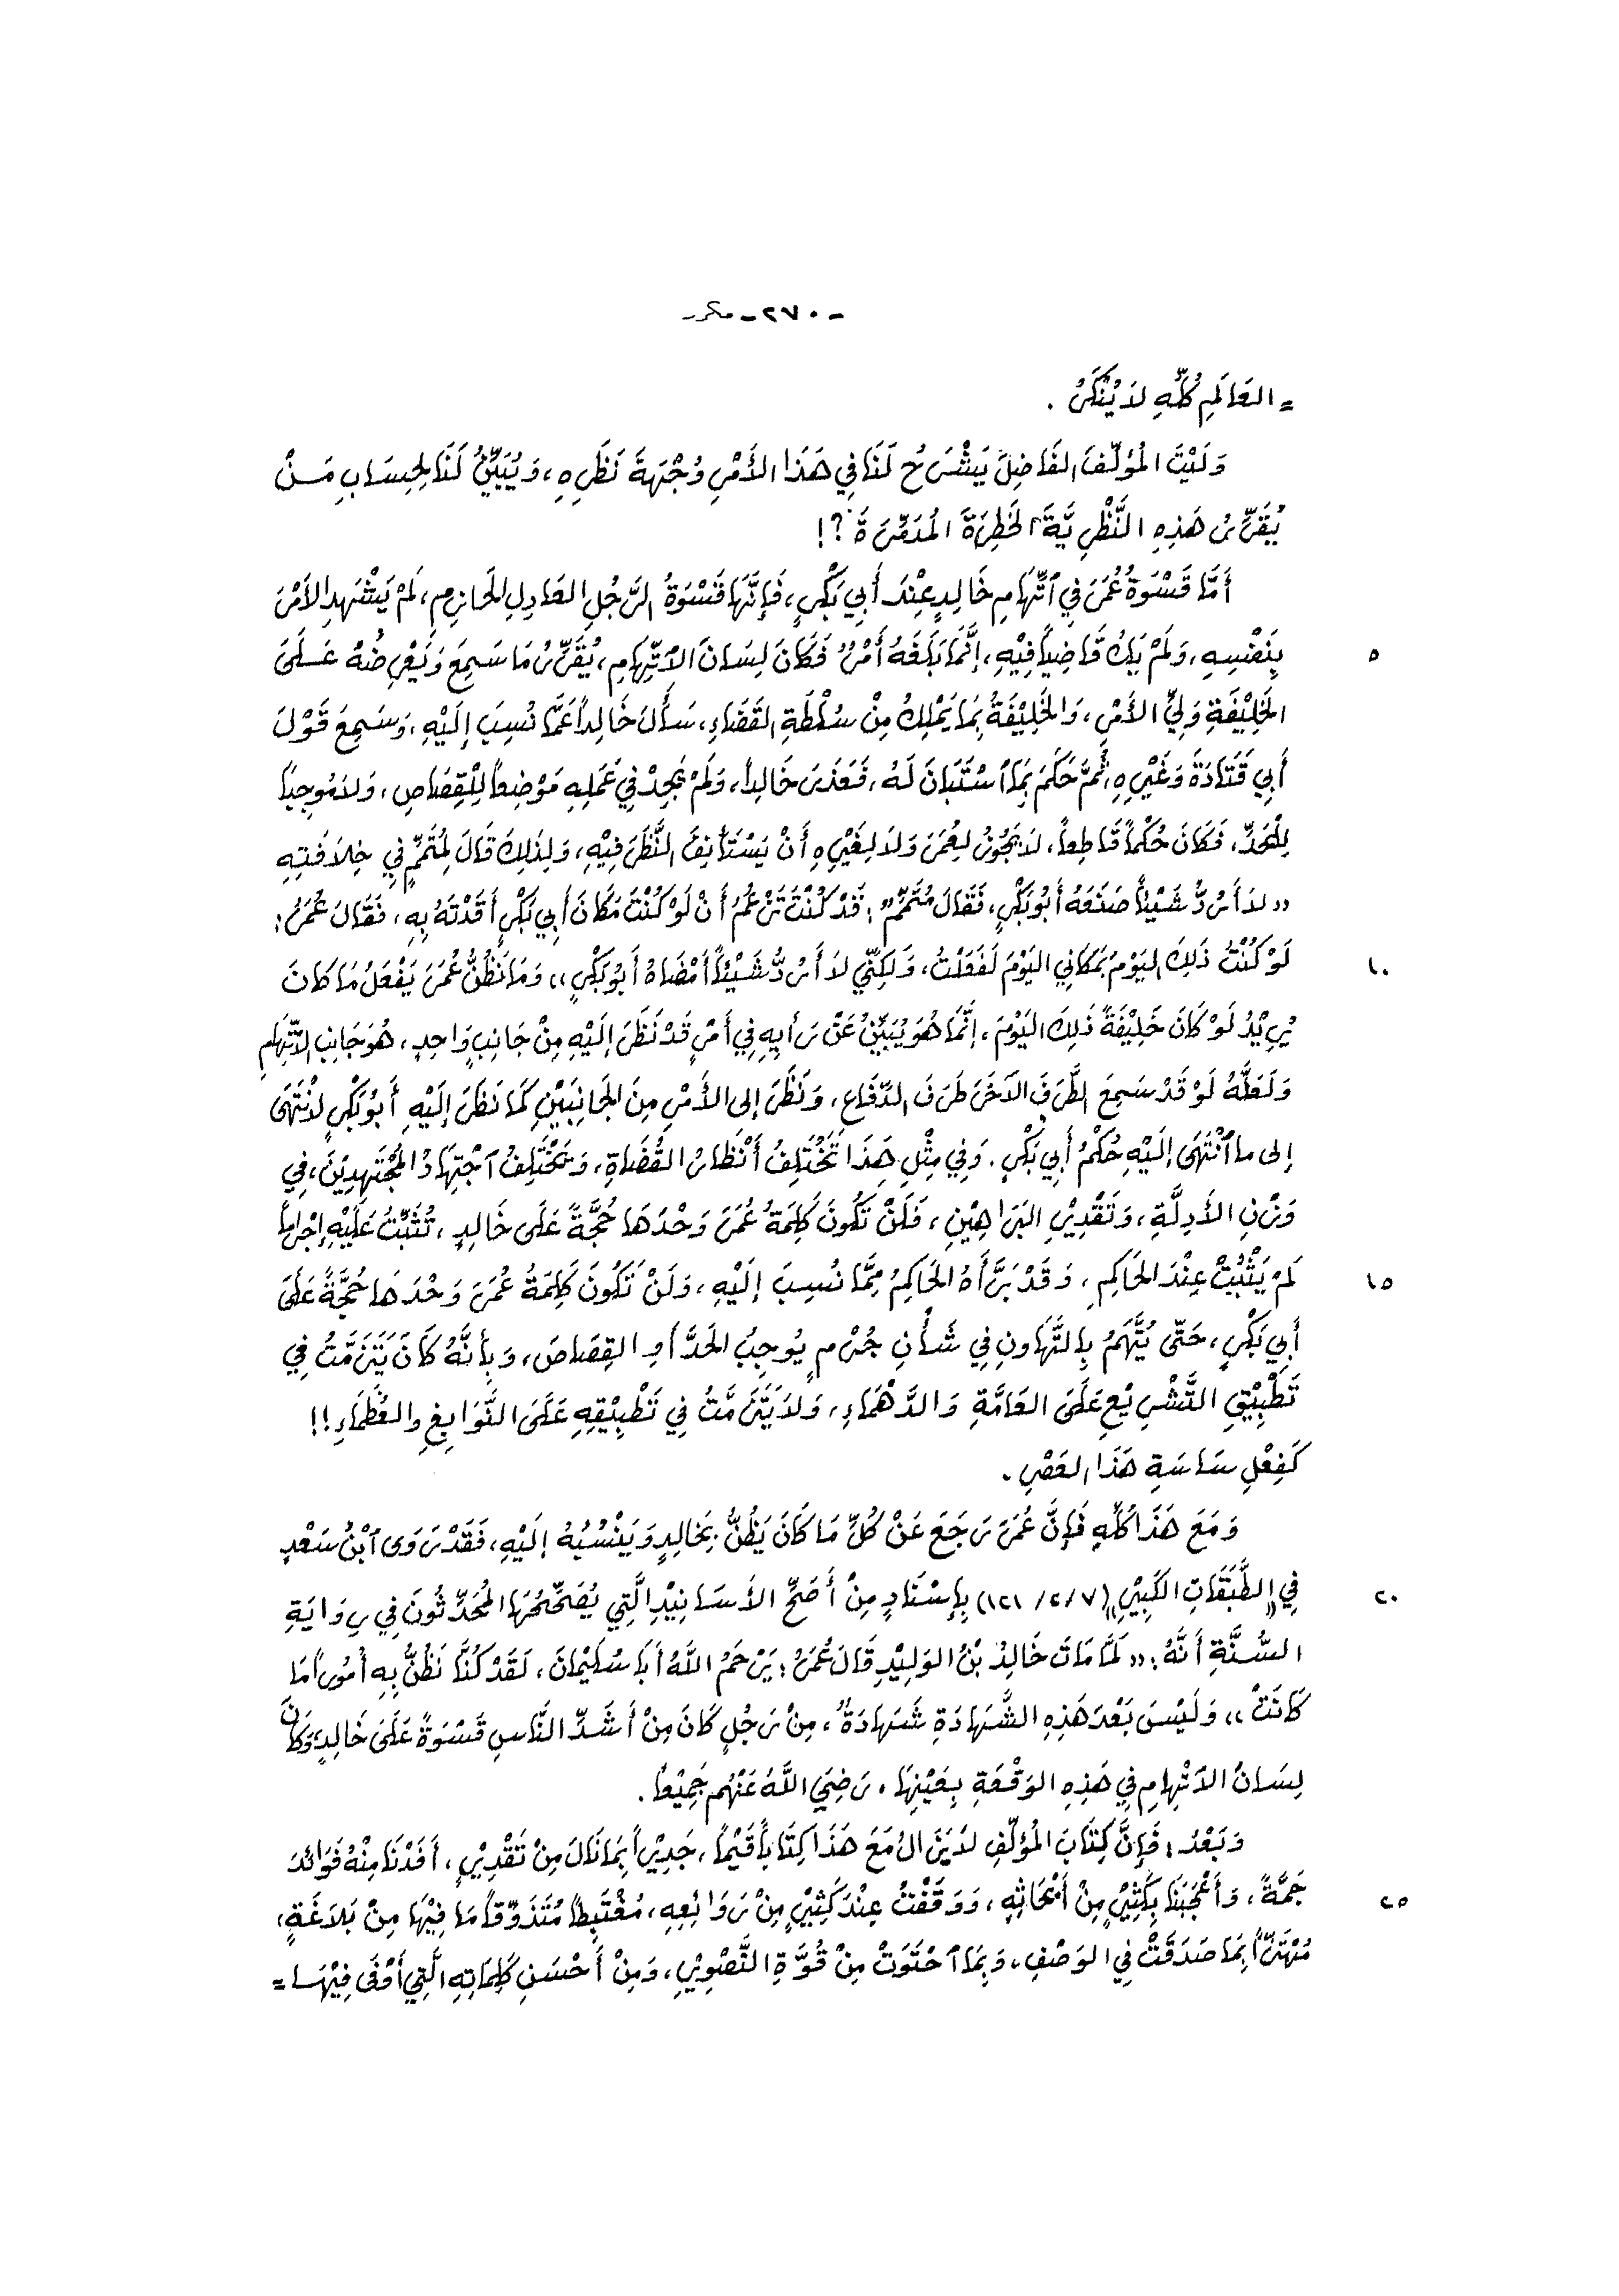 - ٢٧٠ - مكرر
= العَالَمِ كُلِّهِ لاَ يُنْكَرُ .
وَلَيْتَ المُؤَلِّفَ الفَاضِلَ يَشْرَحُ لَنَا فِي هَذَا الأَمْرِ وُجْهَةَ نَظَرِهِ، وَيُبَيِّنُ لَنَا لِحِسَابِ مَنْ
يُقَرِّرُ هَذِهِ النَّظْرِيَّةَ الخَطِرَةَ المُدَمِّرَةَ ؟!
أَمَّا قَسْوَةُ عُمَرَ فِي ٱتِّهَامِ خَالِدٍ عِنْدَ أَبِي بَكْرٍ، فَإِنَّهَا قَسْوَةُ الرَّجُلِ العَادِلِ الحَازِمِ، لَمْ يَشْهَدِ الأَمْرَ
٥ بِنَفْسِهِ، وَلَمْ يَكُ قَاضِياً فِيْهِ، إِنَّمَا بَلَغَهُ أَمْرٌ فَكَانَ لِسَانَ الاتِّهَامِ، يُقَرِّرُ مَا سَمِعَ وَيَعْرِضُهُ عَلَى
الخَلِيْفَةِ وَلِيِّ الأَمْرِ، وَالخَلِيْفَةُ بِمَا يَمْلِكُ مِنْ سُلْطَةِ القَضَاءِ، سَأَلَ خَالِداً عَمَّا نُسِبَ إِلَيْهِ، وَسَمِعَ قَوْلَ
أَبِي قَتَادَةَ وَغَيْرِهِ، ثُمَّ حَكَمَ بِمَا ٱسْتَبَانَ لَهُ، فَعَذَرَ خَالِداً، وَلَمْ يَجِدْ فِي عَمَلِهِ مَوْضِعاً لِلْقِصَاصِ، وَلاَ مُوجِباً
لِلْحَدِّ، فَكَانَ حُكْماً قَاطِعاً، لاَ يَجُوزُ لِعُمَرَ وَلاَ لِغَيْرِهِ أَنْ يَسْتَأْنِفَ النَّظَرَ فِيْهِ، وَلِذَلِكَ قَالَ لِمُتَمِّمٍ فِي خِلاَفَتِهِ
«لاَ أَرُدُّ شَيْئاً صَنَعَهُ أَبُو بَكْرٍ، فَقَالَ مُتَمِّمٌ»: قَدْ كُنْتَ تَزْعُمُ أَنْ لَوْ كُنْتَ مَكَانَ أَبِي بَكْرٍ أَقَدْتَهُ بِهِ، فَقَالَ عُمَرُ:
١٠ لَوْ كُنْتُ ذَلِكَ اليَوْمَ بِمَكَانِي اليَوْمَ لَفَعَلْتُ، وَلَكِنِّي لاَ أَرُدُّ شَيْئاً أَمْضَاهُ أَبُو بَكْرٍ» وَمَا نَظُنُّ عُمَرَ يَفْعَلُ مَا كَانَ
يُرِيْدُ لَوْ كَانَ خَلِيْفَةً ذَلِكَ اليَوْمَ، إِنَّمَا هُوَ يُبَيِّنُ عَنْ رَأْيِهِ فِي أَمْرٍ قَدْ نَظَرَ إِلَيْهِ مِنْ جَانِبٍ وَاحِدٍ، هُوَ جَانِبِ الاتِّهَامِ
وَلَعَلَّهُ لَوْ قَدْ سَمِعَ الطَّرَفَ الآخَرَ طَرَفَ الدِّفَاعِ، وَنَظَرَ إِلى الأَمْرِ مِنَ الجَانِبَيْنِ كَمَا نَظَرَ إِلَيْهِ أَبُو بَكْرٍ لاَنْتَهَى
إِلى ما ٱنْتَهَى إِلَيْهِ حُكْمُ أَبِي بَكْرٍ. وَفِي مِثْلِ هَذَا تَخْتَلِفُ أَنْظَارُ القُضَاةِ، وَيَخْتَلِفُ ٱجْتِهَادُ المُجْتَهِدِيْنَ، فِي
وَزْنِ الأَدِلَّةِ، وَتَقْدِيْرِ البَرَاهِيْنِ، فَلَنْ تَكُونَ كَلِمَةُ عُمَرَ وَحْدَهَا حُجَّةً عَلَى خَالِدٍ، تُثَبِّتُ عَلَيْهِ إِجْرَاماً
١٥ لَمْ يَثْبُتْ عِنْدَ الحَاكِمِ، وَقَدْ بَرَّأَهُ الحَاكِمُ مِمَّا نُسِبَ إِلَيْهِ، وَلَنْ تَكُونَ كَلِمَةُ عُمَرَ وَحْدَهَا حُجَّةً عَلَى
أَبِي بَكْرٍ، حَتّى يُتَّهَمَ بِالتَّهَاونِ فِي شَأْنِ جُرْمٍ يُوجِبُ الحَدَّ أَوِ القِصَاصَ، وَبِأَنَّهُ كَانَ يَتَزَمَّتُ فِي
تَطْبِيْقِ التَّشْرِيْعِ عَلَى العَامَّةِ وَالدَّهْمَاءِ، وَلاَ يَتَزَمَّتُ فِي تَطْبِيْقِهِ عَلَى النَّوَابِغِ والعُظَمَاءِ!!
كَفِعْلِ سَاسَةِ هَذَا العَصْرِ .
وَمَعَ هَذَا كُلِّهِ فَإِنَّ عُمَرَ رَجَعَ عَنْ كُلِّ مَا كَانَ يَظُنُّ بِخَالِدٍ وَيَنْسُبُهُ إِلَيْهِ، فَقَدْ رَوَى ٱبْنُ سَعْدٍ
٢٠ فِي «الطَّبَقَاتِ الكَبِيْرِ» (٧/ ٢/ ١٢١) بِإِسْنَادٍ مِنْ أَصَحِّ الأَسَانِيْدِ الَّتِي يُصَحِّحُهَا المُحَدِّثُونَ فِي رِوَايَةِ
السُّنَّةِ أَنَّهُ: «لَمَّا مَاتَ خَالِدُ بْنُ الوَلِيْدِ قَالَ عُمَرُ: يَرْحَمُ اللهُ أَبَا سُلَيْمَانَ، لَقَدْ كُنَّا نَظُنُّ بِهِ أُمُوراً مَا
كَانَتْ» وَلَيْسَ بَعْدَ هَذِهِ الشَّهَادَةِ شَهَادَةٌ، مِنْ رَجُلٍ كَانَ مِنْ أَشَدِّ النَّاسِ قَسْوَةً عَلَى خَالِدٍ، وَكَانَ
لِسَانَ الاتِّهِامِ فِي هَذِهِ الوَقْعَةِ بِعَيْنِهَا، رَضِيَ اللَّهُ عَنْهُم جَمِيْعاً .
وَبَعْدُ: فَإِنَّ كِتَابَ المُؤَلِّفِ لاَ يَزَالُ مَعَ هَذَا كِتَاباً قَيِّماً، جَدِيْراً بِمَا نَالَ مِنْ تَقْدِيْرٍ، أَفَدْنَا مِنْهُ فَوَائِدَ
٢٥ جَمَّةً، وَأَعْجَبَنَا بِكَثِيْرٍ مِنْ أَبْحَاثِهِ، وَوَقَفْتُ عِنْدَ كَثِيْرٍ مِنْ رَوَائِعِهِ، مُغْتَبِطاً مُتَذَوِّقاً مَا فِيْهَا مِنْ بَلاَغَةٍ،
مُهْتَزّاً بِمَا صَدَقَتْ فِي الوَصْفِ، وَبِمَا ٱحْتَوَتْ مِنْ قُوَّةِ التَّصْوِيْرِ، وَمِنْ أَحْسَنِ كَلِمَاتِهِ الَّتِي أَوْفَى فِيْهَا =